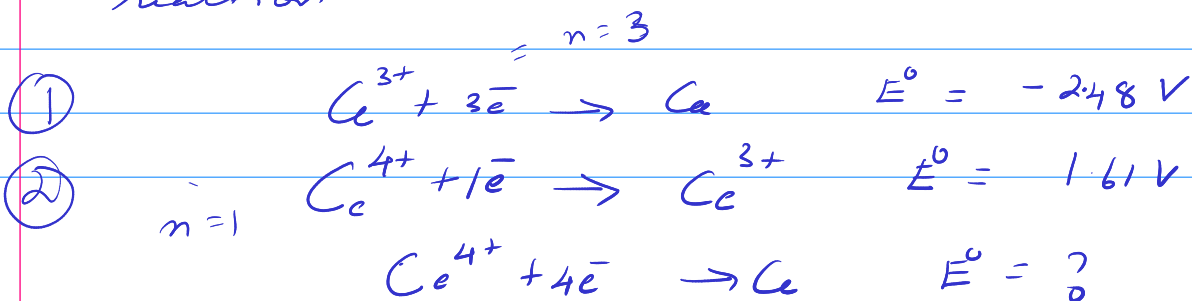 n = 3
① Ce³⁺ + 3e⁻ → Ce E⁰ = - 2.48 V
② Ce⁴⁺ + 1e⁻ → Ce³⁺ E⁰ = 1.61 V
n = 1
Ce⁴⁺ + 4e⁻ → Ce E⁰ = ?